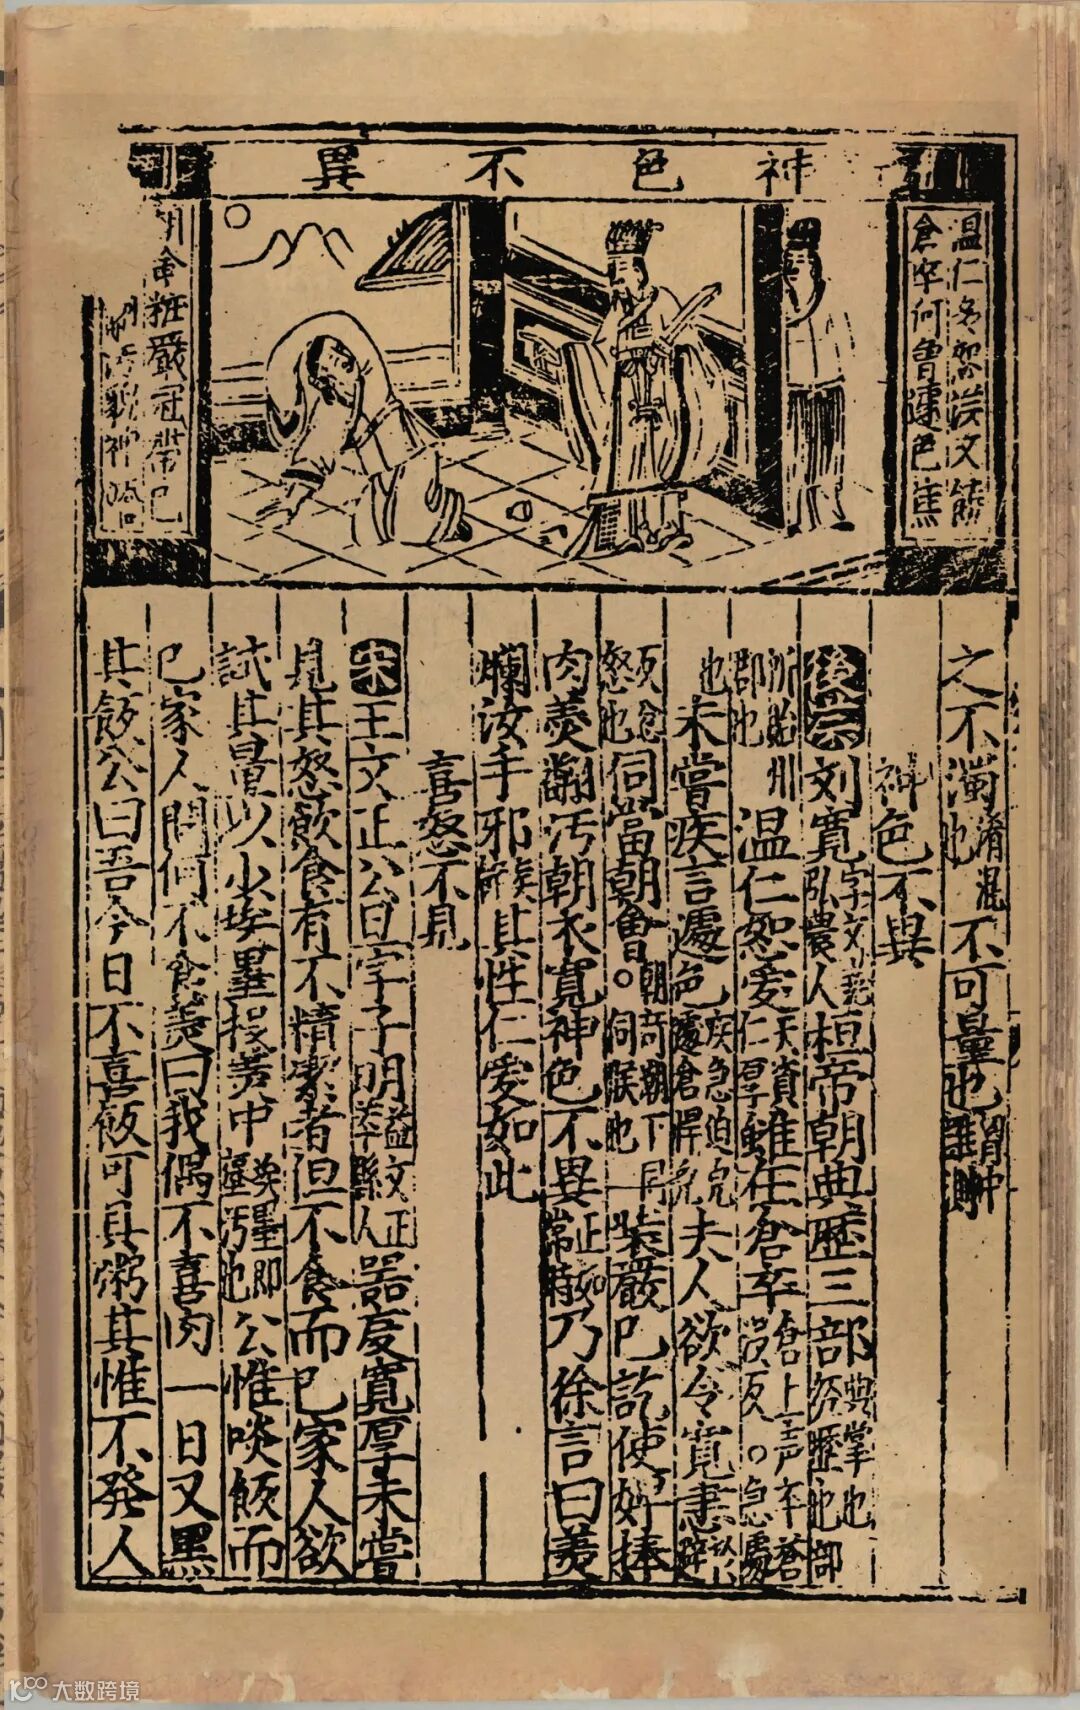 神色不異
温仁多恕漢文饒
倉卒何曾遽色焦
朝會粧嚴冠帶已
之不濁淆混也不可量也
神色不異
後漢刘寬字文饒弘農人桓帝朝典歷三部典掌也歷經也部
所始州郡也温仁恕爱天資仁厚雖在倉卒倉上声卒蒼没反。急遽
也未嘗疾言遽色疾急迫皃遽倉惶皃夫人欲令寬恚
怒也伺當朝會。朝音潮下同伺候也裝嚴已訖使婢捧
肉羹翻汚朝衣寬神色不異正如常時乃徐言曰羹
爛汝手邪其性仁愛如此
喜怒不見
宋王文正公旦字子明謚文正莘縣人器度寬厚未嘗
見其怒飲食有不精潔者但不食而已家人欲
試其量以少埃墨投羹中埃墨即塵污也公惟啖飯而
已家人問何不食羹曰我偶不喜肉一日又墨
其飯公曰吾今日不喜飯可具粥其惟不発人
大数跨境